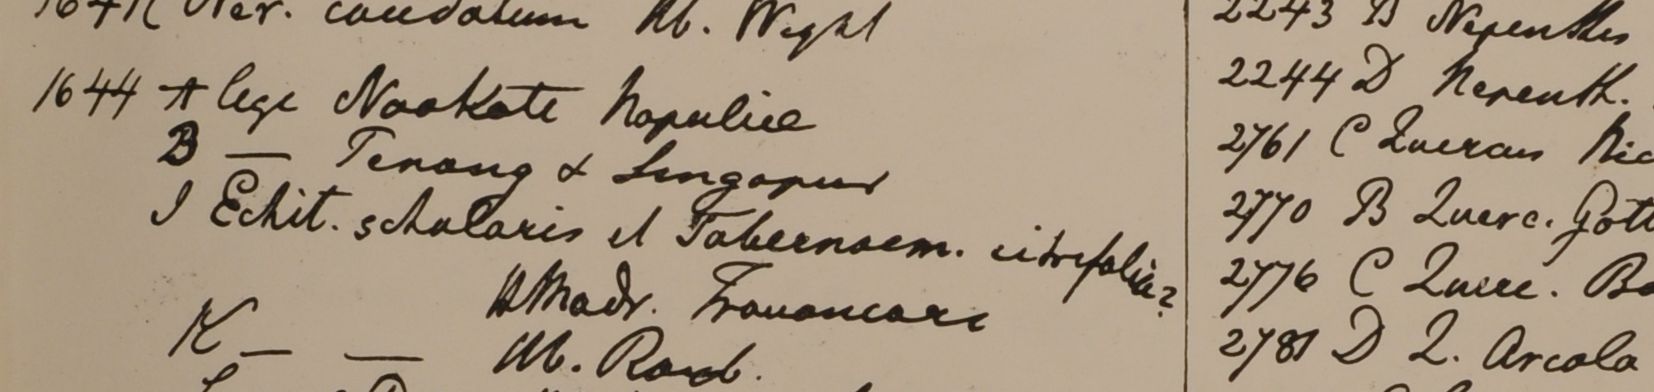 caudatum Hb. Wight
1644 A lege Noakote Napaliae
B — Penang & Singapur
I Echit. scholaris et Tabernaem. citrifolia?
H Madr. Travancore
K — — Hb. Roxb.
2243 B Nepenthes
2244 D Nepenth.
2761 C Quercus
2770 B Querc. Gott
2776 C Querc. Ba
2781 D Q. Arcola